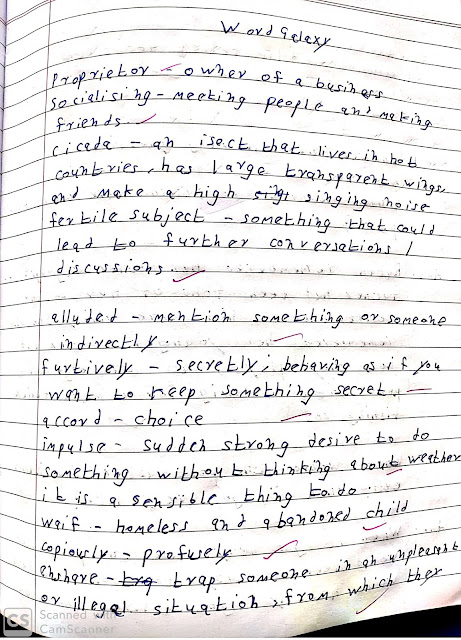 Word Galaxy
Proprietor - owner of a business
socialising - meeting people and making
friends
cicada - an isect that lives in hot
countries, has large transparent wings,
and make a high singing noise
fertile subject - something that could
lead to further conversations /
discussions.
alluded - mention something or someone
indirectly.
furtively - secretly; behaving as if you
want to keep something secret.
accord - choice
impulse - sudden strong desire to do
something without thinking about weather
it is a sensible thing to do.
waif - homeless and abandoned child
copiously - profusely
ensnare - trap someone in an unpleasant
or illegal situation, from which ther
CS Scanned with
CamScanner